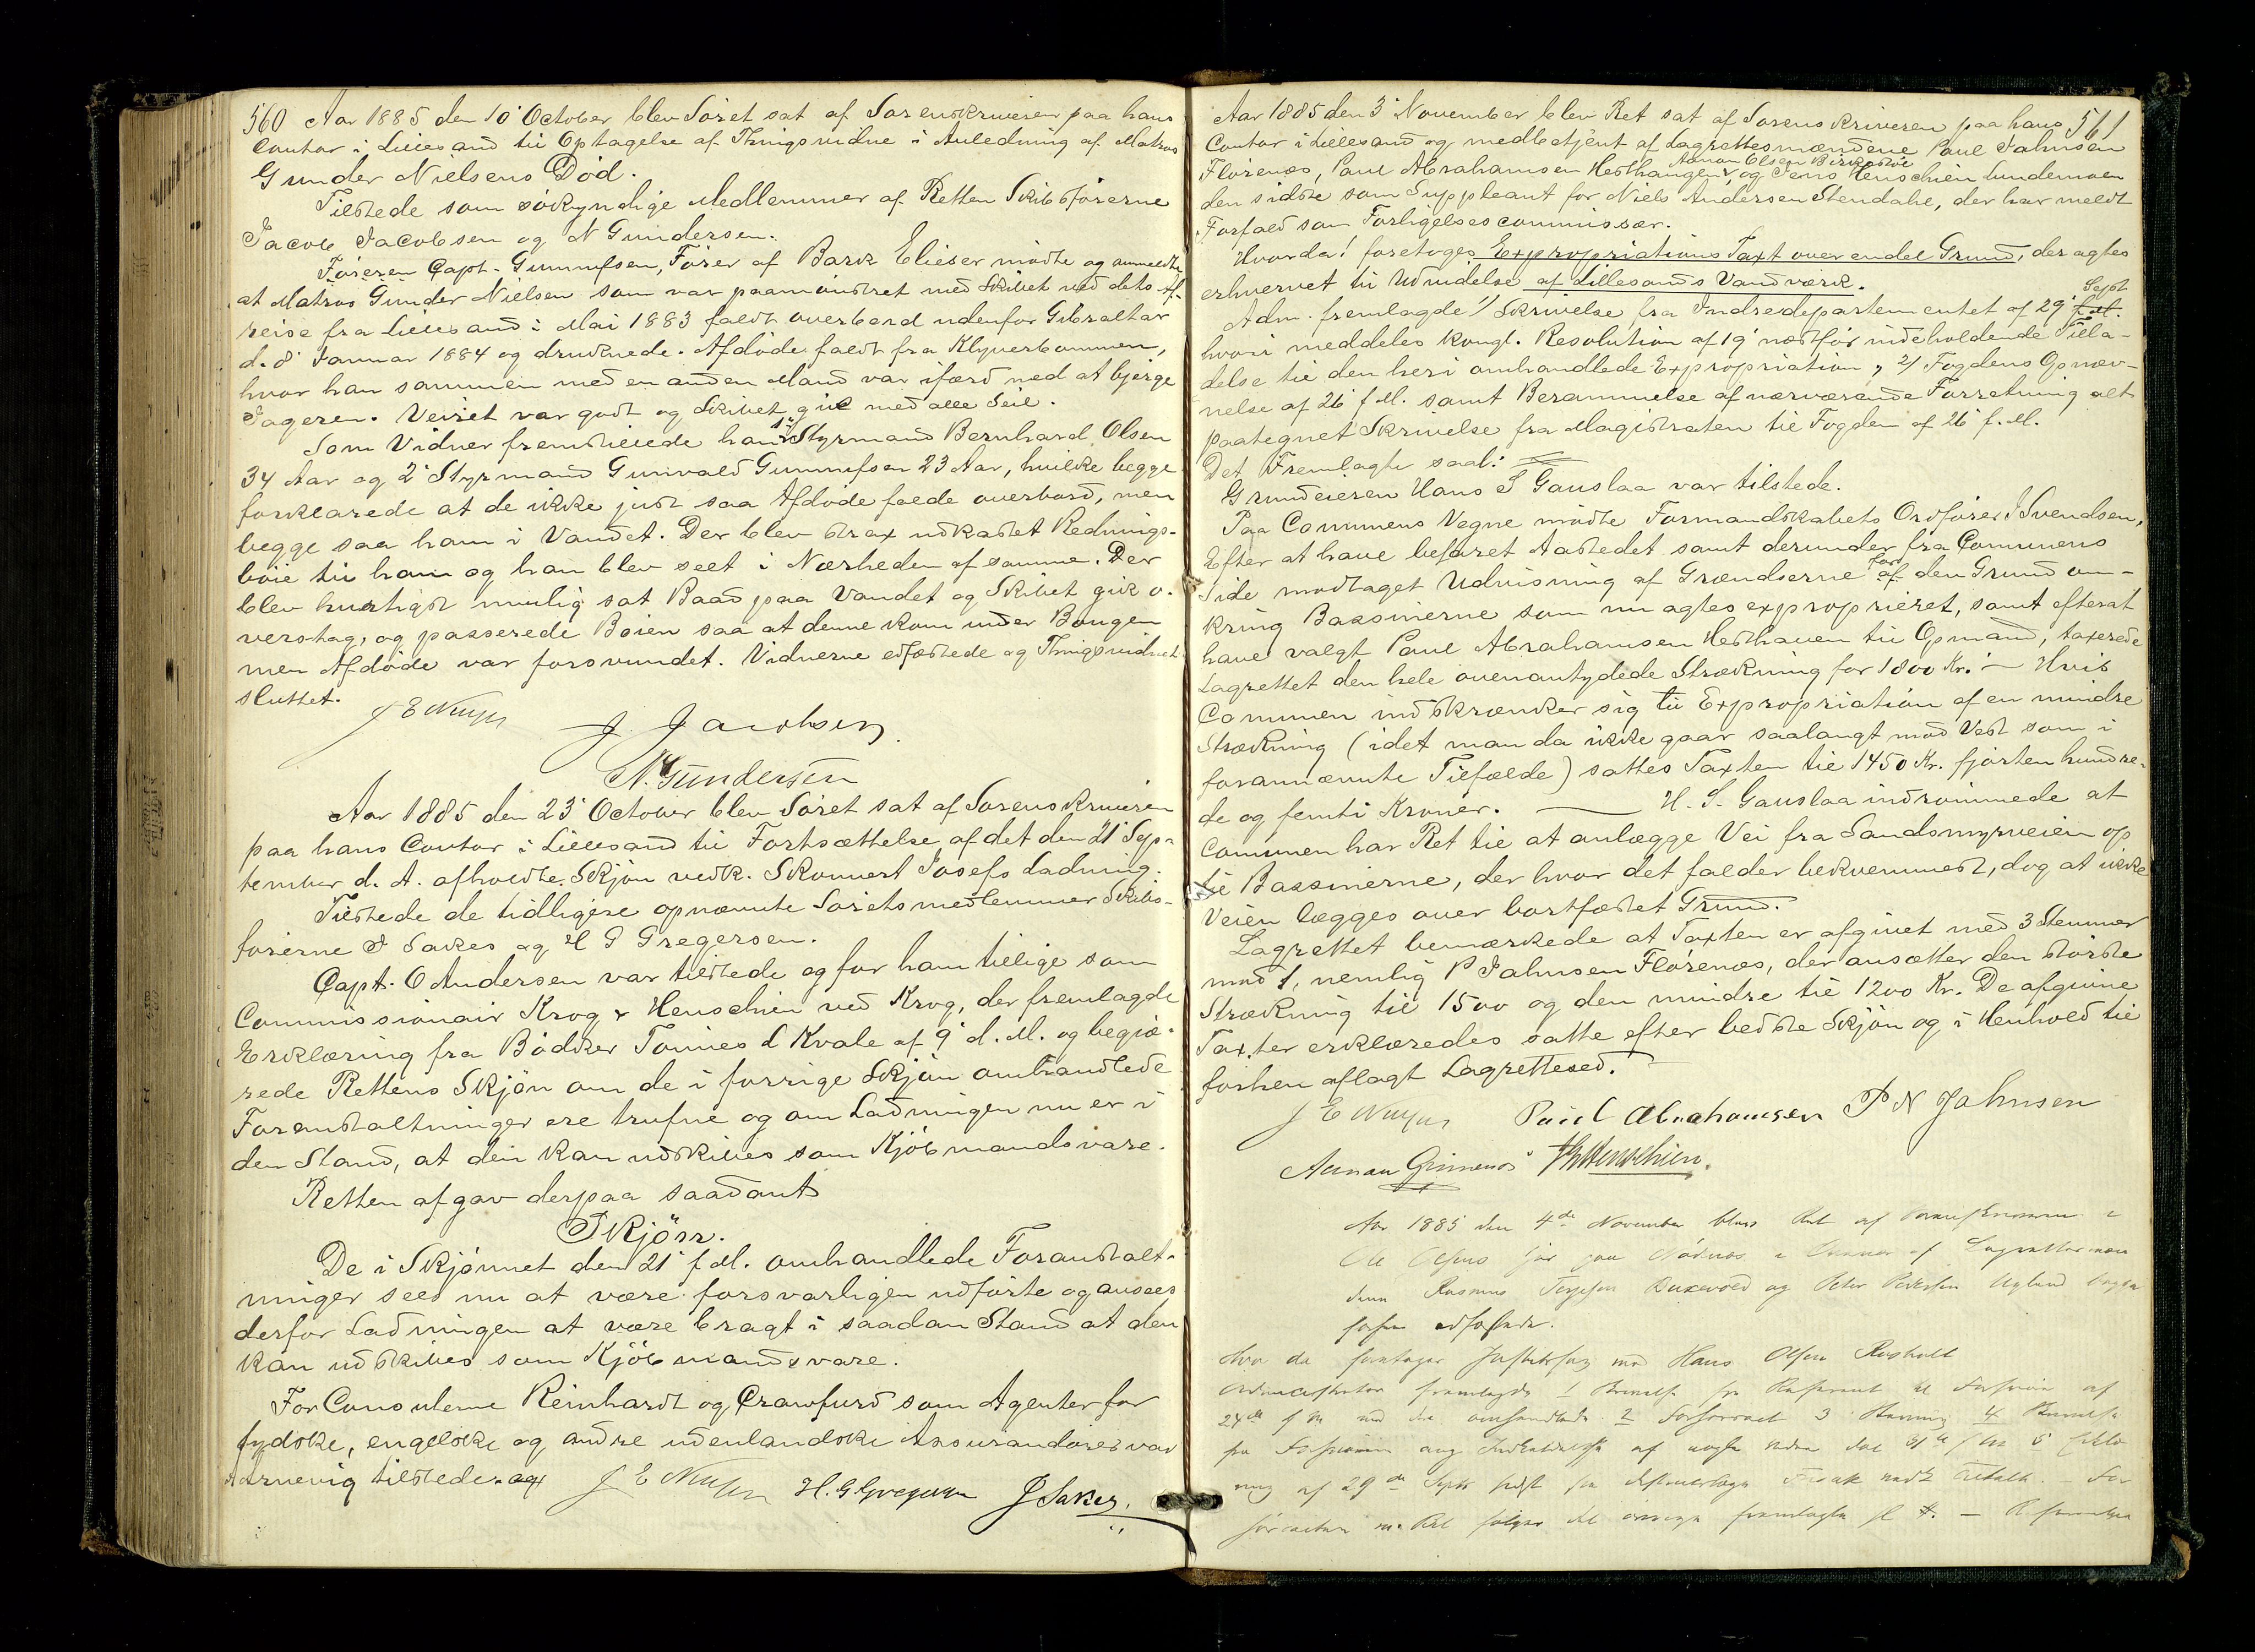 560 Aar 1885 den 10' October blev Söret sat af Sorenskriveren paa hans
Contor i Lillesand til Optagelse af Thingsvidne i Anledning af Matros
Gunder Nielsens Död.
Tilstede som sökyndige Medlemmer af Retten Skibsförerne
Jacob Jacobsen og N Gundersen.
Föreren Capt. Gunnufsen, Förer af Bark Elieser mödte og anmeldte
at Matros Gunder Nielsen som var paamönstret med Skibet ved dets Af-
reise fra Lillesand i Mai 1883 faldt overbord udenfor Gibraltar
d. 8' Januar 1884 og druknede. Afdöde faldt fra Klyverbommen,
hvor han sammen med en anden Mand var ifærd med at bjerge
Jageren. Veiret var godt og Skibet gik med alle Seil.
Som Vidner fremstillede han 1' Styrmand Bernhard Olsen
34 Aar og 2' Styrmand Gunvald Gunnufsen 23 Aar, hvilke begge
forklarede at de ikke just saa Afdöde falde overbord, men
begge saa ham i Vandet. Der blev strax udkastet Rednings-
böie til ham og han blev seet i Nærheden af samme. Der
blev hurtigst mulig sat Baad paa Vandet og Skibet gik o-
verstag, og passerede Böien saa at denne kom under Bougen
men Afdöde var forsvundet. Vidnerne edfæstede og Thingsvidnet
sluttet.
J. Jacobsen
N. Gundersen
Aar 1885 den 23' October blev Söret sat af Sorenskriveren
paa hans Contor i Lillesand til Fortsættelse af det den 21' Sep-
tember d. A. afholdte Skjön vedk. Skonnert Josefs Ladning.
Tilstede de tidligere opnævnte Söretsmedlemmer Skibs-
förerne J Sakes og H G Gregersen.
Capt. O Andersen var tilstede og for ham tillige som
Commissionair Krog & Henschien ved Krog, der fremlagde
Erklæring fra Bödker Tönnes L Kvale af 9' d. M. og begjæ-
rede Rettens Skjön om de i forrige Skjön omhandlede
Foranstaltninger ere trufne og om Ladningen nu er i
den Stand, at den kan udskibes som Kjöbmandsvare.
Retten afgav derpaa saadant
Skjön.
De i Skjönnet den 21' f. M. omhandlede Foranstalt-
ninger sees nu at være forsvarligen udförte og ansees
derfor Ladningen at være bragt i saadan Stand at den
kan udskibes som Kjöbmandsvare.
For Consulerne Reinhardt og Crawfurd som Agenter for
tydske, engelske og andre udenlandske Assurandörer var
Arnevig tilstede. og
H. G Gregersen J Sakes.
Aar 1885 den 3' November blev Ret sat af Sorenskriveren paa hans 561
Contor i Lillesand og medbetjent af Lagrettesmændene Paul Jahnsen
Aanon Olsen Birkedal
Flörenæs, Paul Abrahamsen Hesthangen, og Jens Henschien Lundemoen
den sidste som Suppleant for Niels Andersen Stendahl, der har meldt
Forfald som Forligelsescommissær.
Hvorda! foretoges Expropriations Taxt over endel Grund, der agtes
erhvervet til Udvidelse af Lillesands Vandværk.
Sept
Adm. fremlagde 1/ Skrivelse fra Indredepartementet af 29' f.M.
hvori meddeles kongl. Resolution af 19' næstfor indeholdende Tilla-
delse til den heri omhandlede Expropriation, 2/ Fogdens Opnæv-
nelse af 26' f. M. samt Berammelse af nærværende Forretning alt
paategnet Skrivelse fra Magistraten til Fogden af 26' f. M.
Det Fremlagte saal:
Grundeieren Hans S Gauslaa var tilstede.
Paa Communens Vegne mödte Formandskabets Ordförer J Svendsen,
Efter at have befaret Aastedet samt derunder fra Communens
for
Side modtaget Udvisning af Grændserne af den Grund om-
kring Bassinerne som nu agtes exproprieret, samt efterat
have valgt Paul Abrahamsen Hesthauen til Opmand, taxerede
Lagrettet den hele ovenantydede Strækning for 1800 Kr. — Hvis
Communen indskrænker sig til Expropriation af en mindre
Strækning (idet man da ikke gaar saalangt mod Vest som i
forannævnte Tilfælde) sattes Taxten til 1450 Kr. fjorten hundre-
de og femti Kroner. — H. S. Gauslaa indrömmede at
Communen har Ret til at anlægge Vei fra Sandsmyrveien op
til Bassinerne, der hvor det falder bekvemmest, dog at ikke
Veien lægges over bortfæstet Grund.
Lagrettet bemærkede at Taxten er afgivet med 3 Stemmer
mod 1, nemlig P Jahnsen Flörenæs, der ansætter den störste
Strækning til 1500 og den mindre til 1200 Kr. De afgivne
Taxter erklæredes satte efter bedste Skjön og i Henhold til
forhen aflagt Lagretteed.
Paul Abrahamsen P N Jahnsen
Aanon Grimenes JHenschien.
Aar 1885 den 4de November blev Ret af Sorenskriveren i
Lagrettemæn
dene Rasmus og Peter Pedersen begge
forhen edfæstede.
Hvor da foretages Justitssag mod Hans Olsen